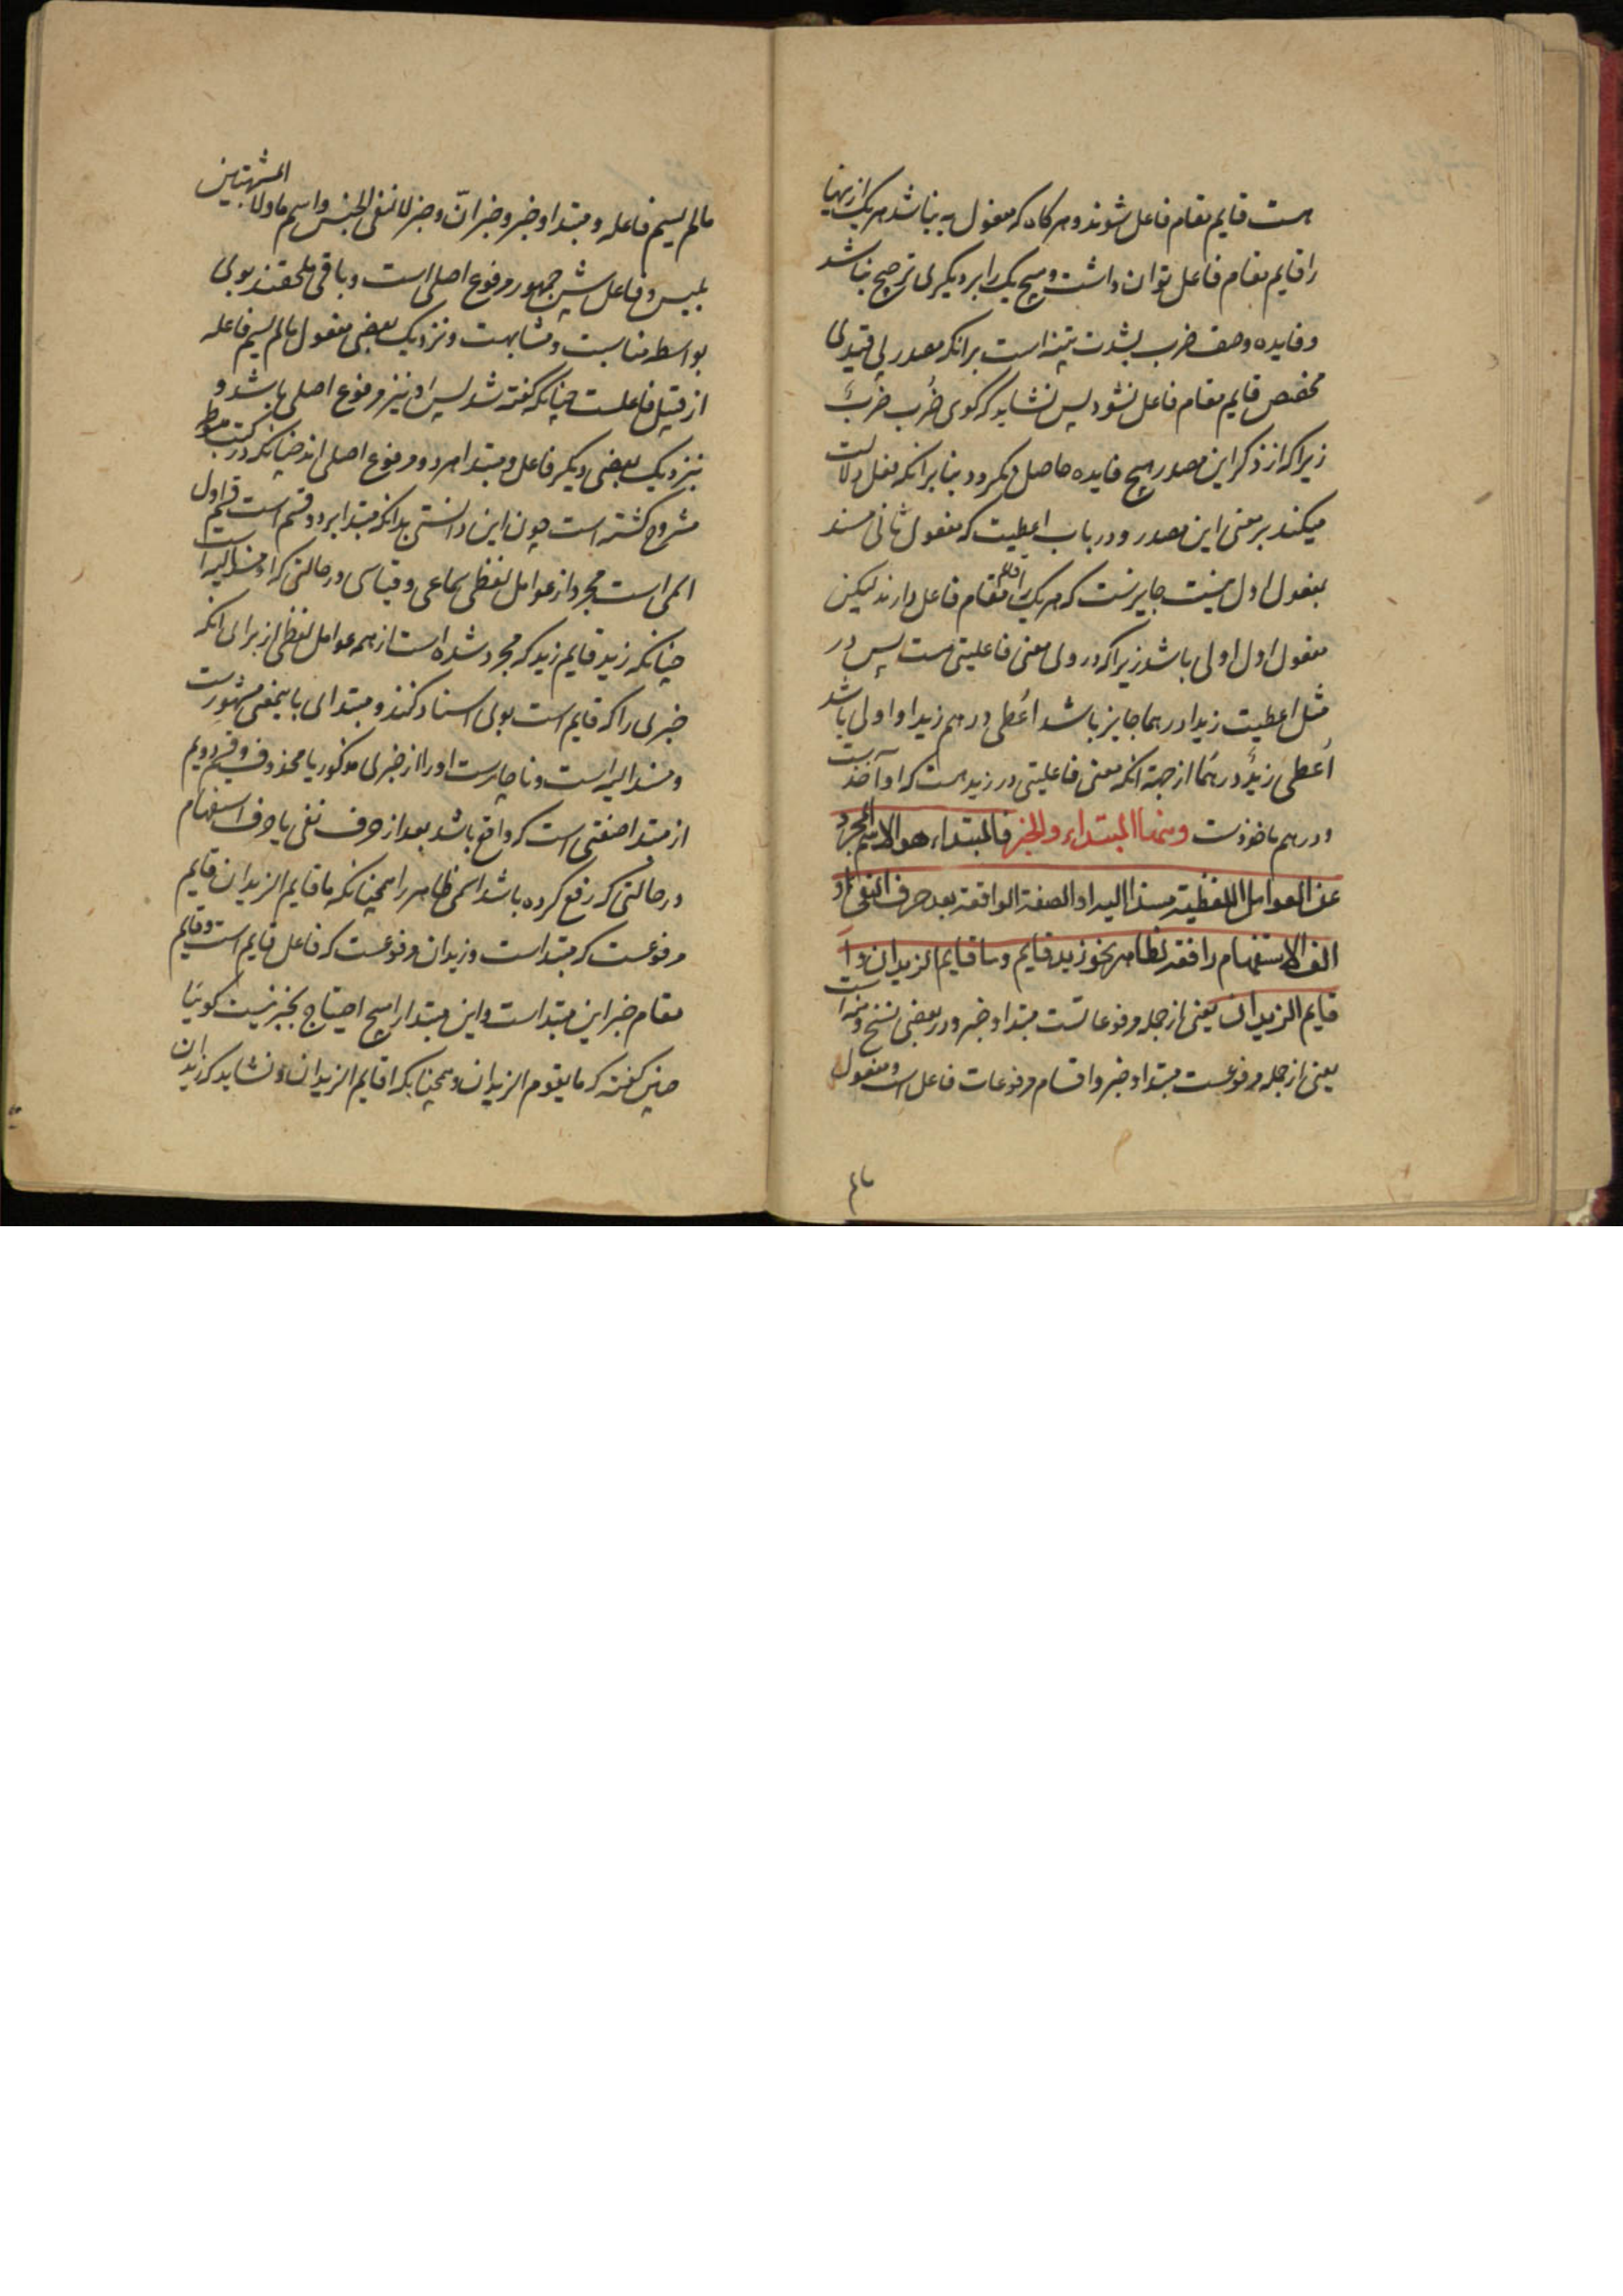 هست قایم مقام فاعل شوند و هر کاه که مفعول به نباشد هر یک ازینها
را قایم مقام فاعل توان داشت و هیچ یک را بر دیکری ترجیح نباشد
و فایده وصف ضرب بشدت تنبیه است برانکه مصدر بی قیدی
مخصص قایم مقام فاعل نشود پس نشاید که کوی ضُرِب ضربٌ
زیرا که از ذکر این مصدر هیچ فایده حاصل نکردد بنا برانکه فعل دلالت
میکند بر معنی این مصدر و در باب اعطیت که مفعول ثانی مسند
بمفعول اول نیست جایزست که هر یک را قایم مقام فاعل دارند لیکن
مفعول اول اولی باشد زیرا که در وی معنی فاعلیتی هست پس در
مثل اعطیت زیدا درهما جایز باشد اُعطی درهم زیدا و اولی باشد
اُعطی زیدٌ درهمًا از جهة انکه معنی فاعلیتی در زید هست که او آخذست
و درهم ماخوذست ومنها المبتداء والخبر فالمبتداء هو الاسم المجرد
عن العوامل اللفظیة مسندا الیه او الصفة الواقعة بعد حرف النفی او
الف الاستفهام رافعة لظاهر نحو زید قایم وما قایم الزیدان و أ
قایم الزیدان یعنی از جمله مرفوعاتست مبتدا و خبر و در بعضی نسخ و منه است
یعنی از جمله مرفوعست مبتدا و خبر و اقسام مرفوعات فاعل است و مفعول
مالم
مالم یسم فاعله و مبتدا و خبر و خبر انّ و خبر لا نفی الجنس و اسم ما و لا المشبهتین
بلیس و فاعل پیش جمهور مرفوع اصلی است و باقی ملحقند بوی
بواسطه مناسبت و مشابهت و نزدیک بعضی مفعول مالم یسم فاعله
از قبیل فاعلست چنانکه کفته شد پس او نیز مرفوع اصلی باشد و
نزدیک بعضی دیکر فاعل و مبتدا هر دو مرفوع اصلی اند چنانکه در کتب مبسوط
مشروح کشته است چون این دانستی بدانکه مبتدا بر دو قسم است قسم اول
اسمی است مجرد از عوامل لفظی سماعی و قیاسی در حالتی که او مسند الیه است
چنانکه زید قایم زید که مجرد شده است از همه عوامل لفظی از برای انکه
خبری را که قایم است بوی اسناد کنند و مبتدای باینمعنی مشهورست
و مسند الیه است و ناچارست او را از خبری مذکور یا محذوف و قسم دویم
از مبتدا صفتی است که واقع باشد بعد از حرف نفی یا حرف استفهام
در حالتی که رفع کرده باشد اسمی ظاهر را همچنانکه ما قایم الزیدان قایم
مرفوعست که مبتداست و زیدان مرفوعست که فاعل قایم است و قایم
مقام خبر این مبتداست و این مبتدا را هیچ احتیاج بخبر نیست کوییا
چنین کفته که ما یقوم الزیدان و همچنانکه اقایم الزیدان و نشاید که زیدان